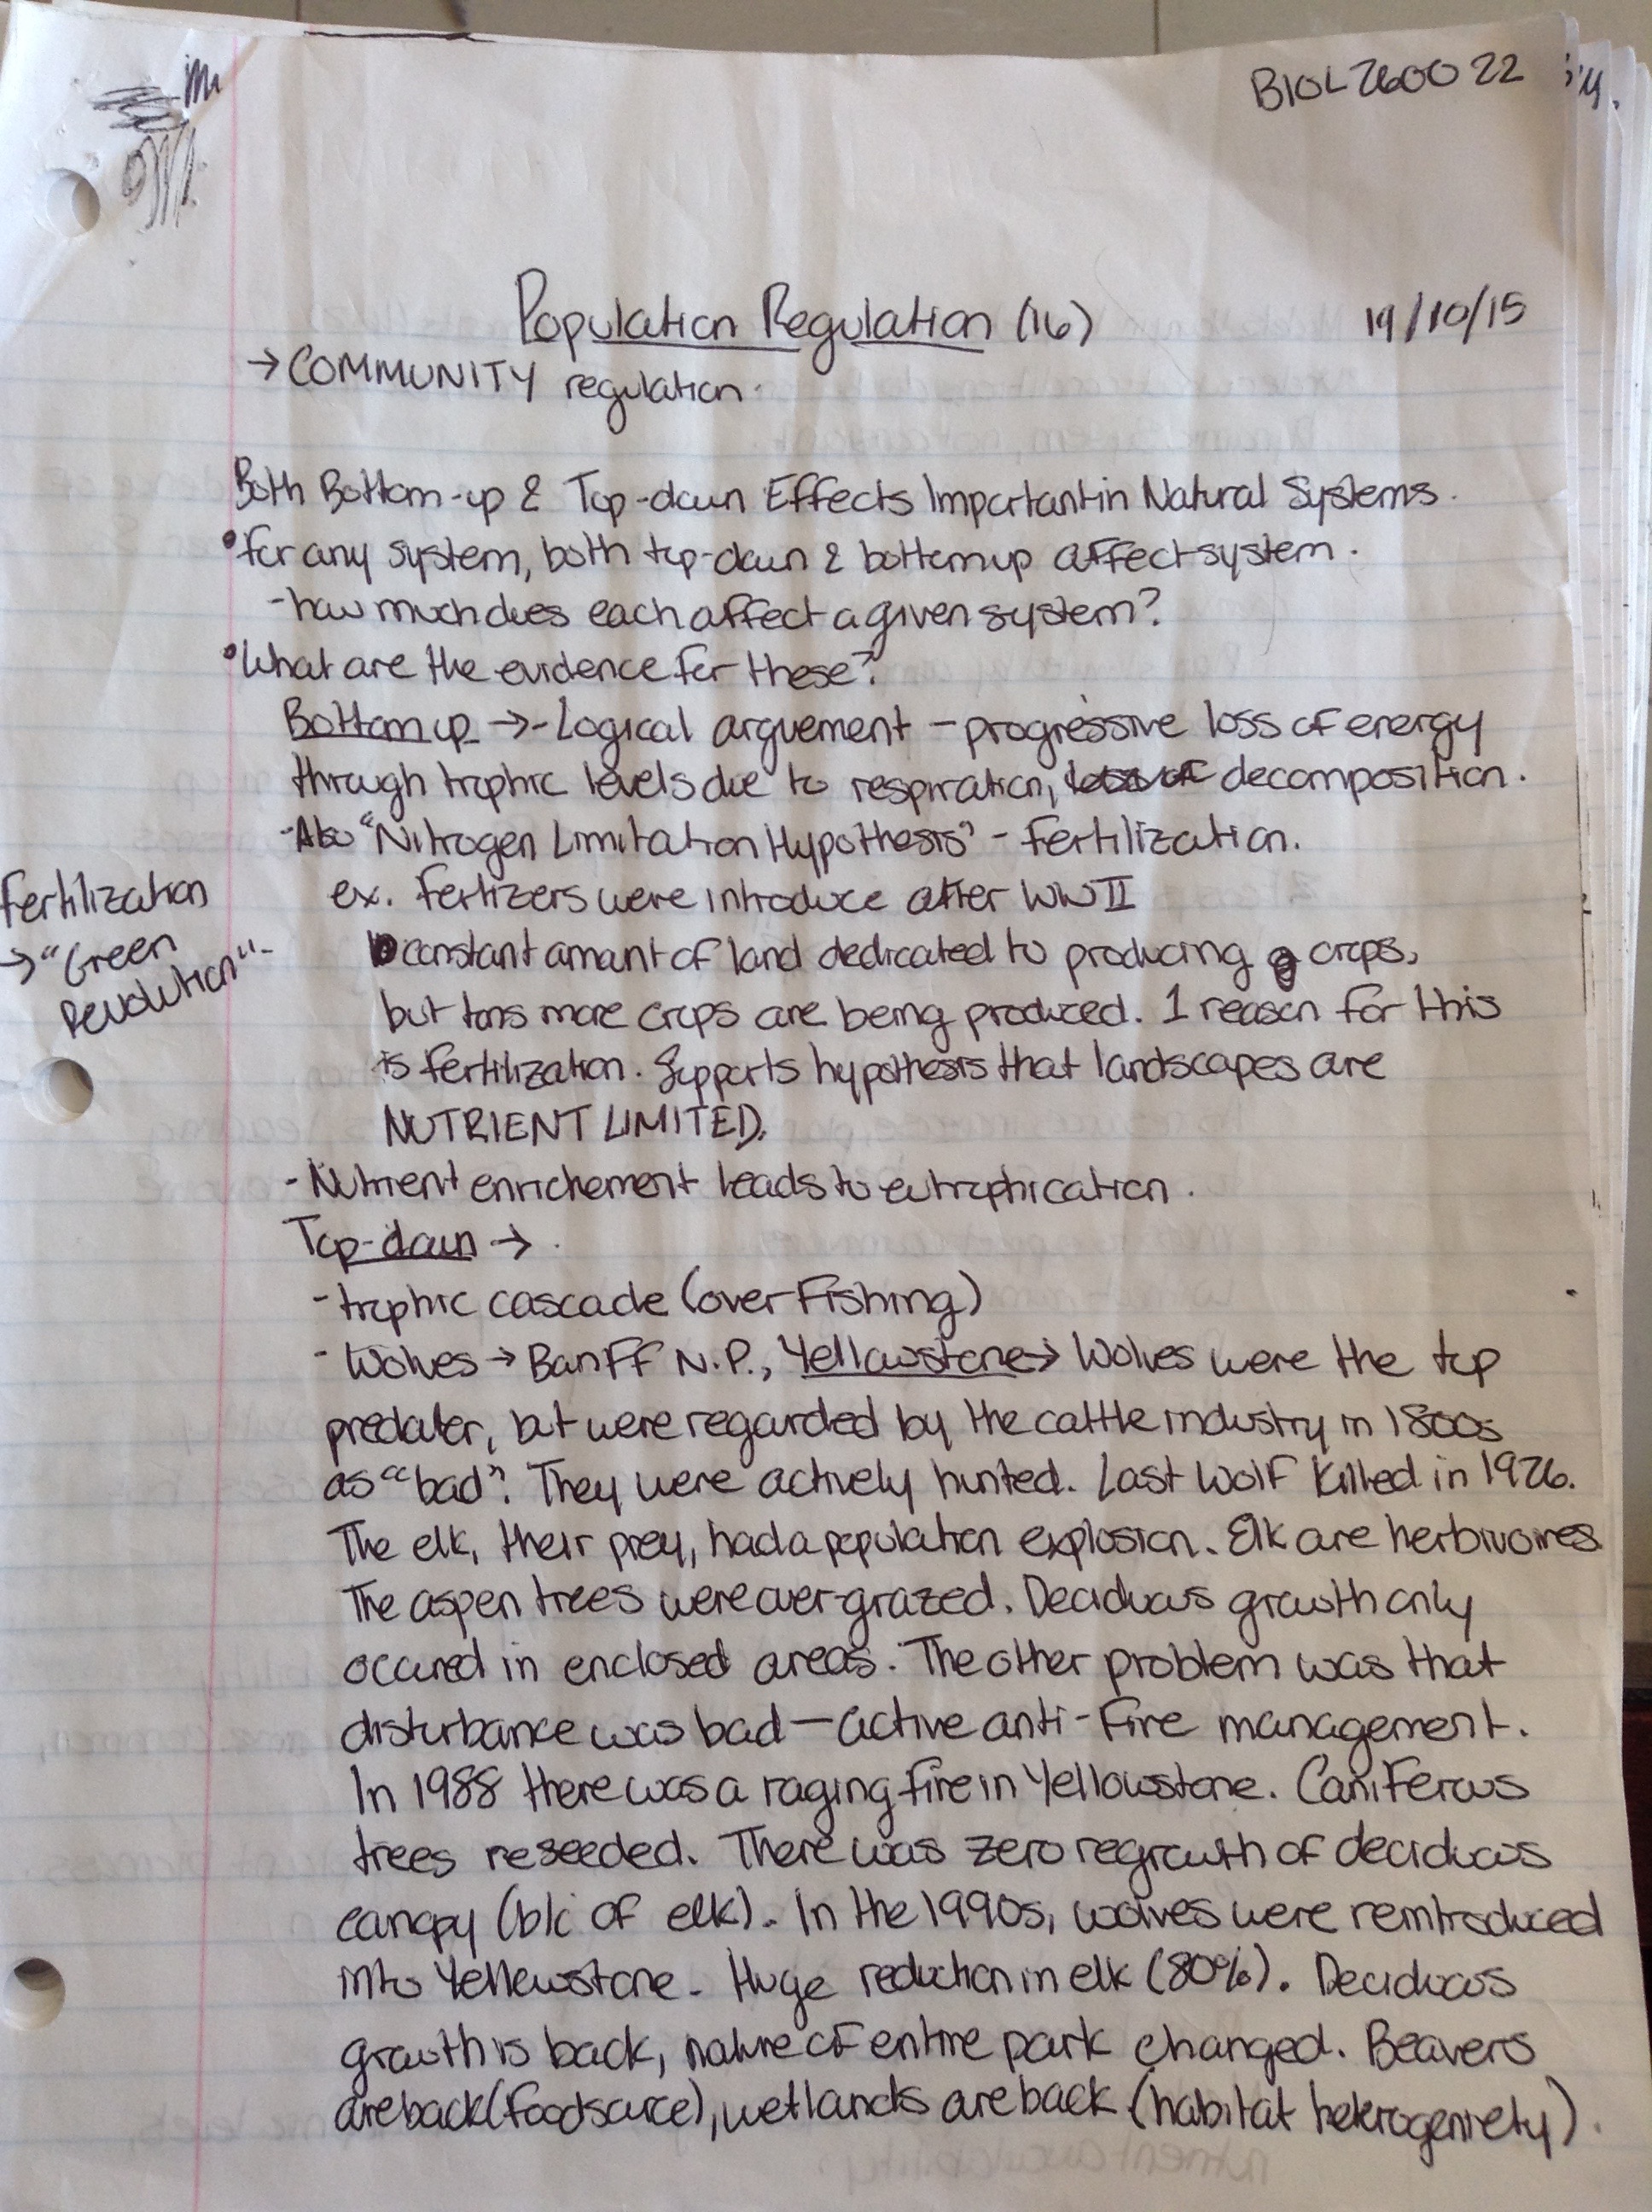 BIOL 2600 22
Population Regulation (16) 19/10/15
→ COMMUNITY regulation.
Both Bottom-up & Top-down Effects Important in Natural Systems.
• for any system, both top-down & bottom up affect system.
- how much does each affect a given system?
• What are the evidence for these?
Bottom up → - Logical arguement - progressive loss of energy
through trophic levels due to respiration, decomposition.
- Also "Nitrogen Limitation Hypothesis" - Fertilization.
Fertilization
→ "Green
Revolution"
ex. Fertizers were introduce after WWII
constant amant of land dedicated to producing crops,
but tons more crops are being produced. 1 reason for this
is fertilization. Supports hypothesis that landscapes are
NUTRIENT LIMITED.
- Nutrient enrichement leads to eutrophication.
Top-down →
- trophic cascade (over Fishing)
- Wolves → Banff N.P., Yellowstone → Wolves were the top
predater, but were regarded by the cattle industry in 1800s
as "bad". They were actively hunted. Last Wolf killed in 1926.
The elk, their prey, had a population explosion. Elk are herbivoires.
The aspen trees were over-grazed. Deciduous growth only
occured in enclosed areas. The other problem was that
disturbance was bad — active anti-Fire management.
In 1988 there was a raging fire in Yellowstone. Coniferous
trees reseeded. There was zero regrowth of deciduous
canopy (b/c of elk). In the 1990s, wolves were reintroduced
into Yellowstone. Huge reduction in elk (80%). Deciduous
growth is back, nature of entire park changed. Beavers
are back (food source), wetlands are back (habitat heterogeniety).